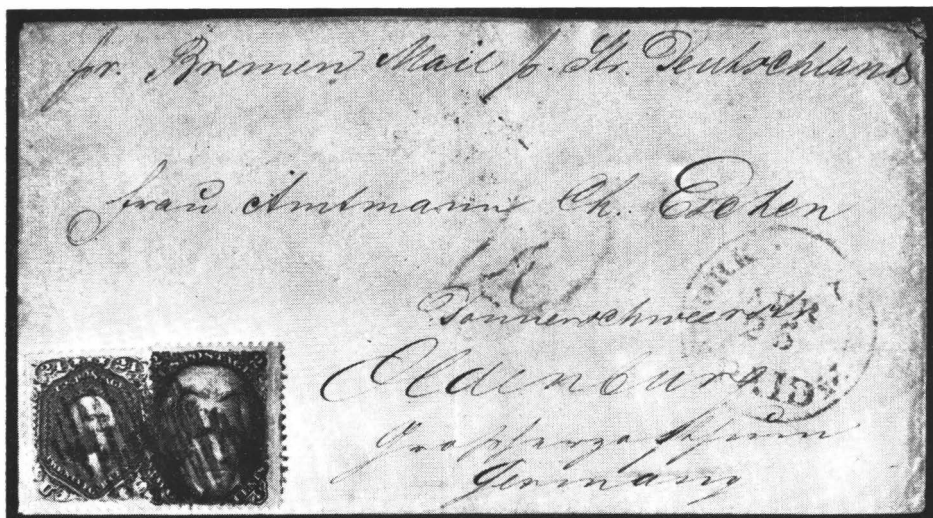 pr. Bremen Mail p. Str. Deutschland
Frau Amtmann Ch. Escken
Donnerschweerstr.
Oldenburg
Grossherzogthum
Germany
YORK
APR
25
PAID
24